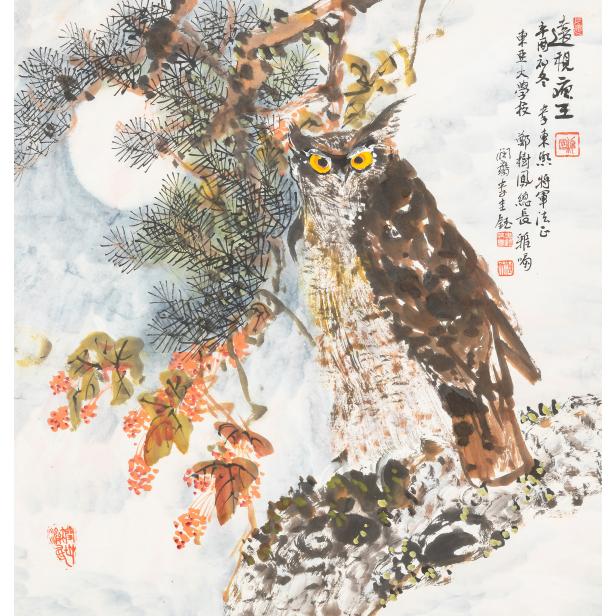 遠視夜王
辛酉初冬 李東熙 將軍法正
東亞大學校 鄭樹鳳總長 雅囑
李圭鈺